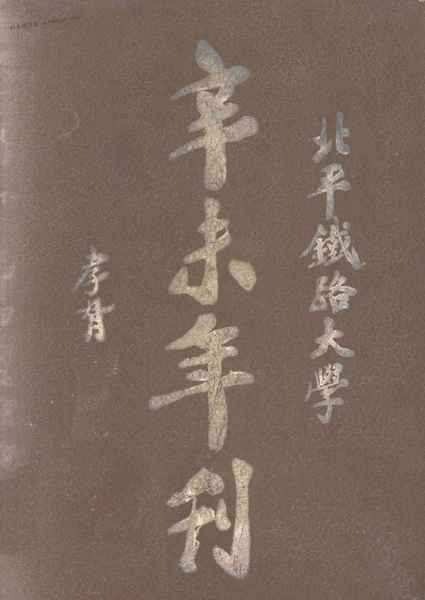 北平鐵路大學
辛未年刊
孝胥